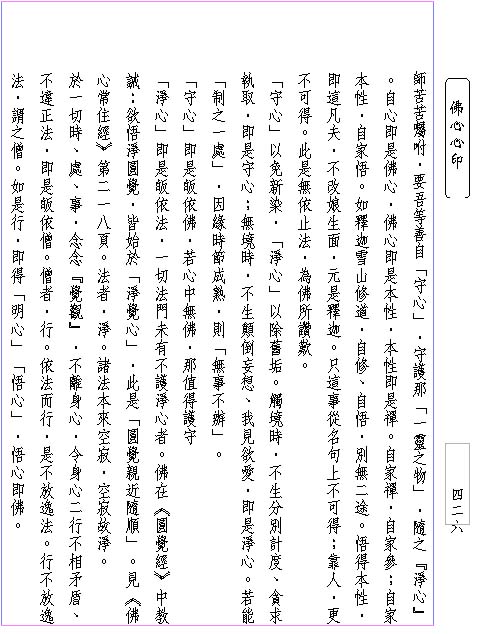 佛心心印
師苦苦囑咐，要吾等善自「守心」，守護那「一靈之物」，隨之『淨心』
。自心即是佛心，佛心即是本性，本性即是禪。自家禪，自家參；自家
本性，自家悟。如釋迦雪山修道，自修、自悟，別無二途。悟得本性，
即這凡夫，不改娘生面，元是釋迦。只這事從名句上不可得；靠人，更
不可得。此是無依止法，為佛所讚歎。
「守心」以免新染，「淨心」以除舊垢。觸境時，不生分別計度、貪求
執取，即是守心；無境時，不生顛倒妄想、我見欲愛，即是淨心。若能
「制之一處」，因緣時節成熟，則「無事不辦」。
「守心」即是皈依佛，若心中無佛，那值得護守
「淨心」即是皈依法，一切法門未有不護淨心者。佛在《圓覺經》中教
誡：欲悟淨圓覺，皆始於「淨覺心」，此是「圓覺親近隨順」。見《佛
心常住經》第二一八頁。法者，淨。諸法本來空寂，空寂故淨。
於一切時、處、事，念念『覺觀』，不離身心，令身心二行不相矛盾、
不違正法，即是皈依僧。僧者，行。依法而行，是不放逸法。行不放逸
法，謂之僧。如是行，即得「明心」「悟心」，悟心即佛。
四二六